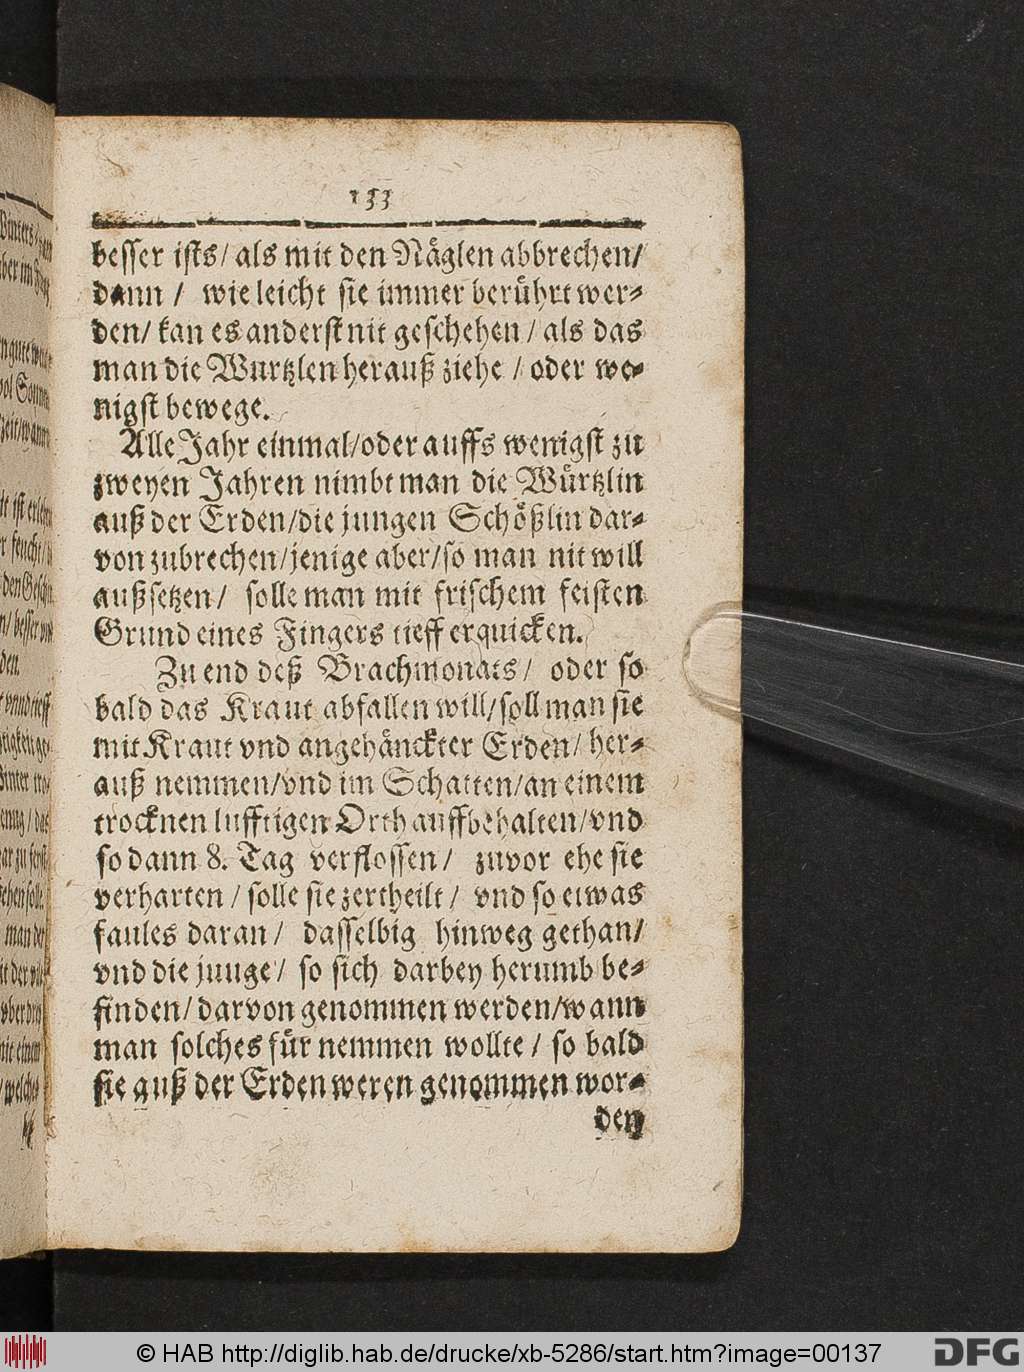 133
besser ists/ als mit den Näglen abbrechen/
dann / wie leicht sie immer berührt wer-
den/ kan es anderst nit geschehen / als das
man die Wurtzlen herauß ziehe / oder we-
nigst bewege.
Alle Jahr einmal/oder auffs wenigst zu
zweyen Jahren nimbt man die Würtzlin
auß der Erden/die jungen Schößlin dar-
von zubrechen/jenige aber/so man nit will
außsetzen/ solle man mit frischem feisten
Grund eines Fingers tieff erquicken.
Zu end deß Brachmonats/ oder so
bald das Kraut abfallen will/soll man sie
mit Kraut vnd angehänckter Erden/ her-
auß nemmen/vnd im Schatten/an einem
trocknen lufftigen Orth auffbehalten/vnd
so dann 8. Tag verflossen/ zuvor ehe sie
verharten / solle sie zertheilt / vnd so etwas
faules daran/ dasselbig hinweg gethan/
vnd die junge/ so sich darbey herumb be-
finden/ darvon genommen werden/wann
man solches für nemmen wollte / so bald
sie auß der Erden weren genommen wor-
den
© HAB http://diglib.hab.de/drucke/xb-5286/start.htm?image=00137
DFG